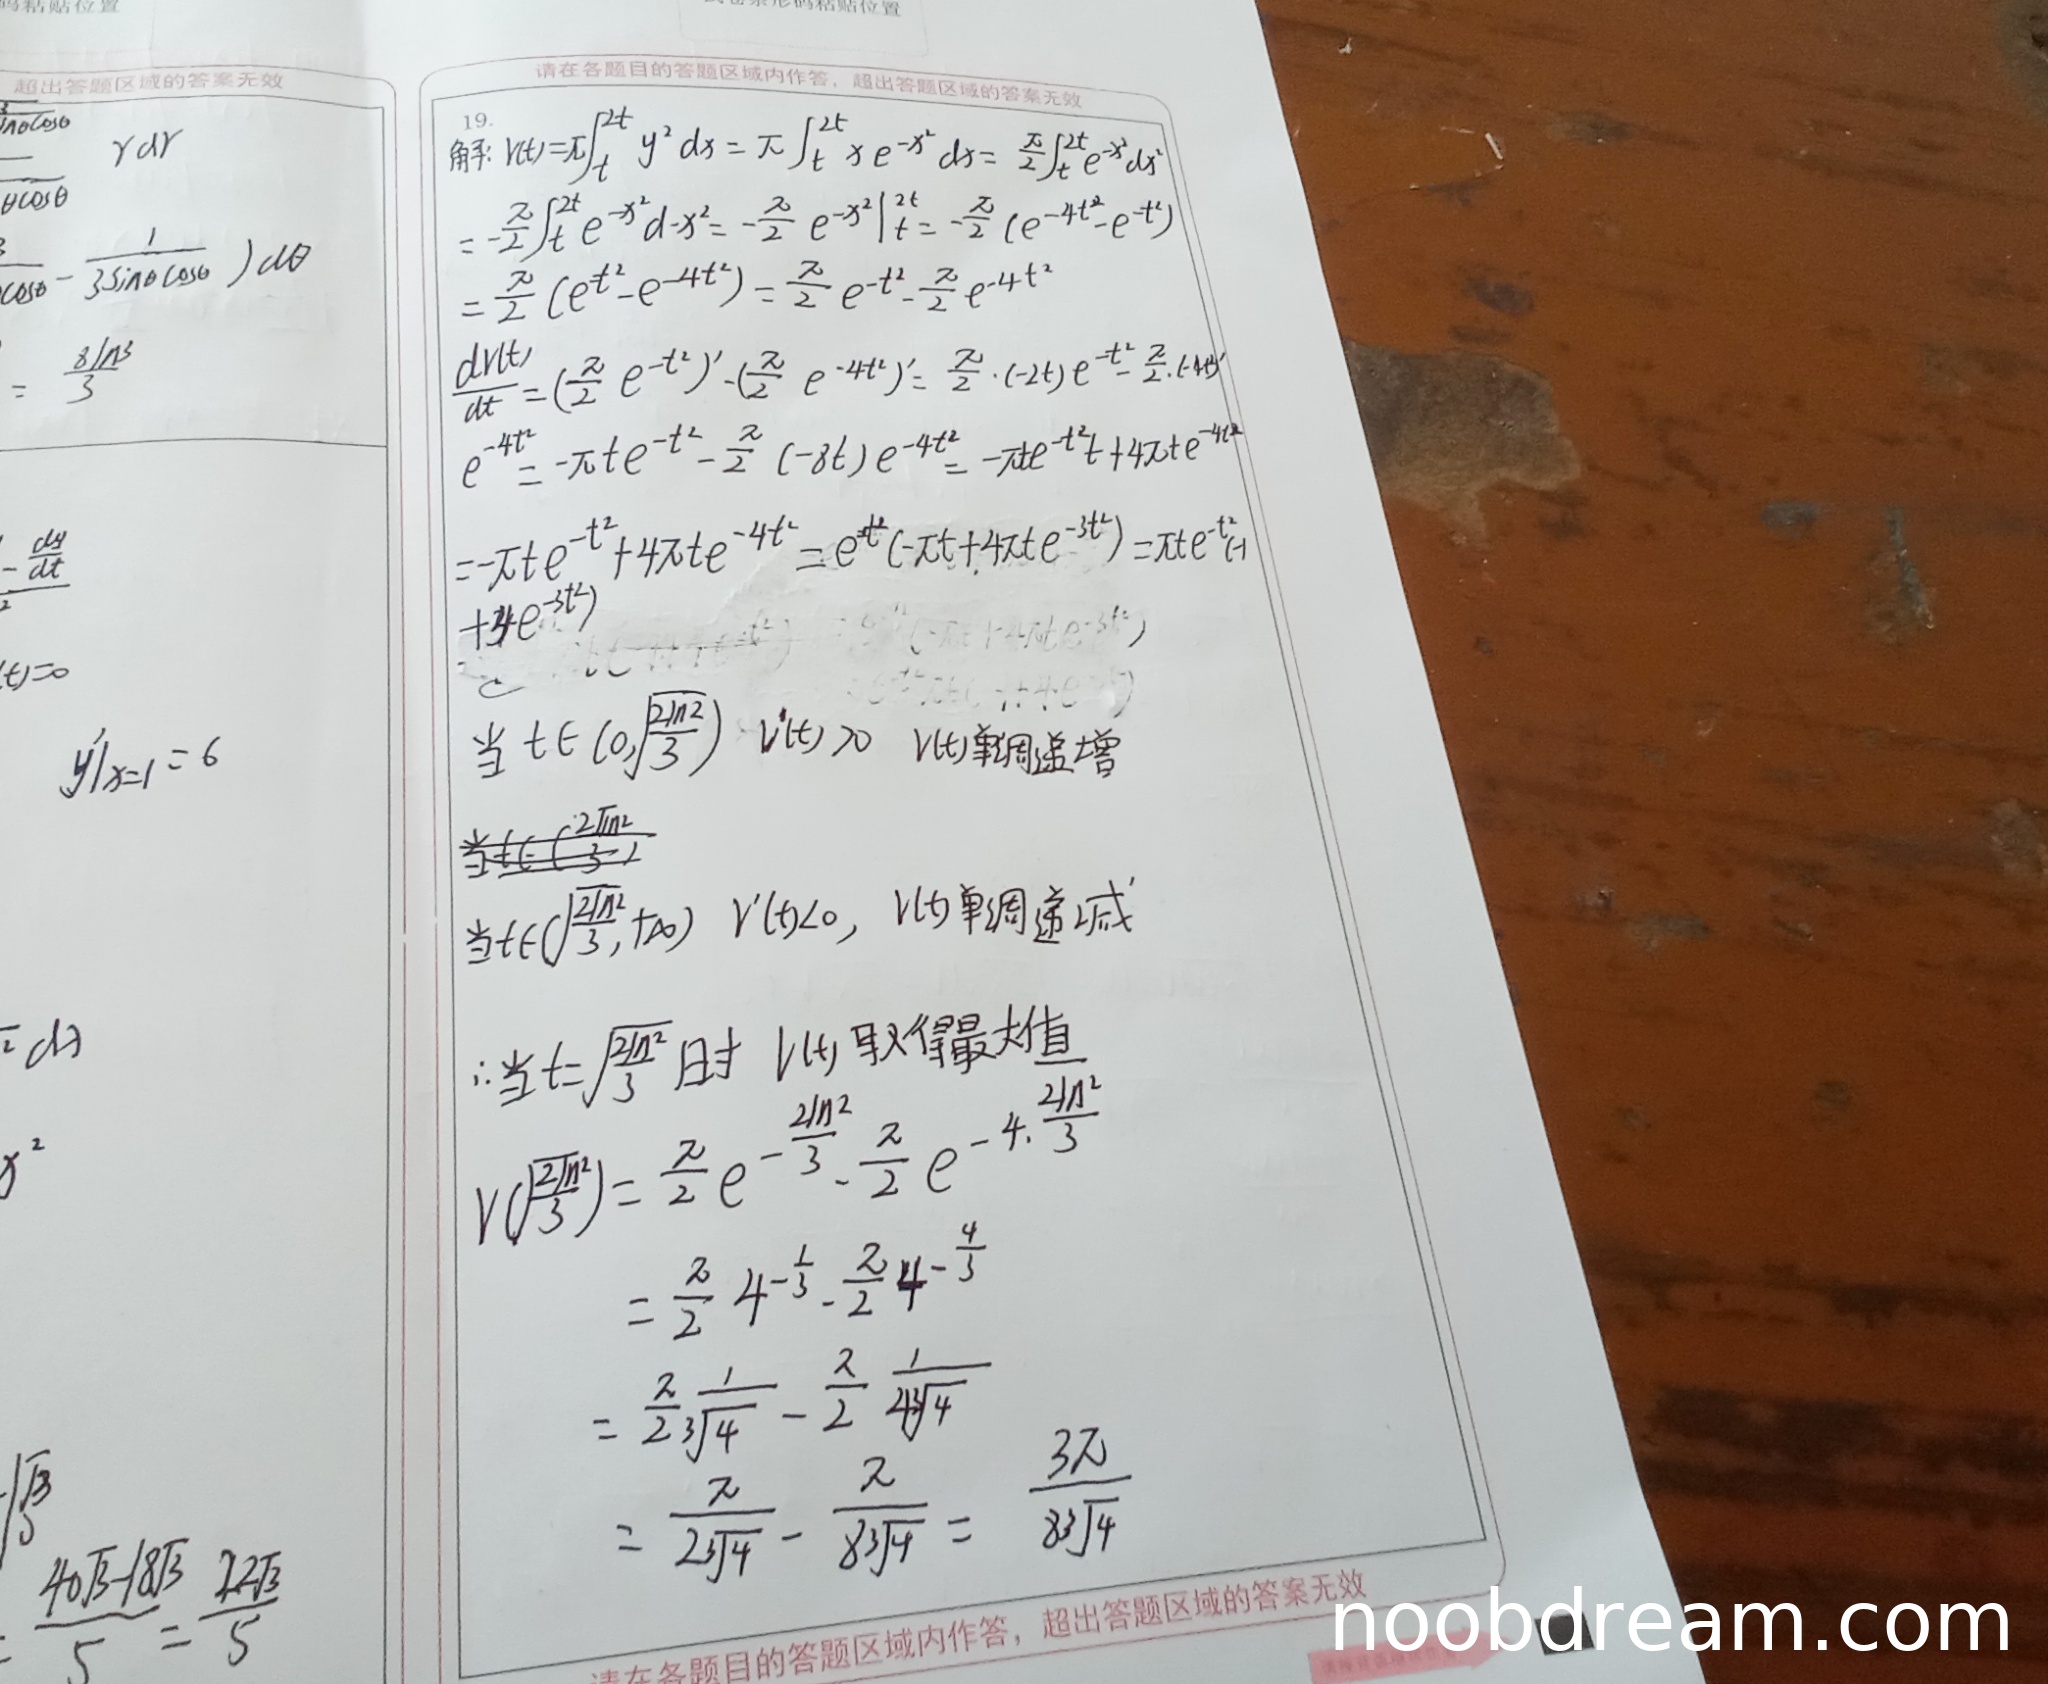 码粘贴位置
条形码粘贴位置
超出答题区域的答案无效
rdr
θcosθ
cosθ - 1/(3sinθcosθ) ) dθ
= 8ln3/3
- dy/dt
(t)=0
y'|x=1 = 6
dx
x²
= (40√3-18√3)/5 = 22√3/5
请在各题目的答题区域内作答，超出答题区域的答案无效
19.
解: V(t)=π∫_t^2t y² dx = π∫_t^2t x e^-x² dx = π/2 ∫_t^2t e^-x² dx²
= -π/2 ∫_t^2t e^-x² d-x² = -π/2 e^-x² |_t^2t = -π/2 (e^-4t² - e^-t²)
= π/2 (e^t² - e^-4t²) = π/2 e^-t² - π/2 e^-4t²
dV(t)/dt = (π/2 e^-t²)' - (π/2 e^-4t²)' = π/2 · (-2t) e^-t² - π/2 · (-4t²)'
e^-4t² = -πte^-t² - π/2 (-8t) e^-4t² = -πte^-t² t + 4πte^-4t²
= -πte^-t² + 4πte^-4t² = e^-t² (-πt + 4πte^-3t²) = πte^-t² (-1
+4e^-3t²)
当 t∈(0,√(2ln2/3)) V'(t)>0 V(t)单调递增
当t∈(√(2ln2/3), +∞) V'(t)<0, V(t)单调递减
∴当 t=√(2ln2/3) 时 V(t) 取得最大值
V(√(2ln2/3)) = π/2 e^(-2ln2/3) - π/2 e^(-4·2ln2/3)
= π/2 4^(-1/3) - π/2 4^(-4/3)
= π/2 1/³√4 - π/2 1/(4³√4)
= π/(2³√4) - π/(8³√4) = 3π/(8³√4)
请在各题目的答题区域内作答，超出答题区域的答案无效
noobdream.com